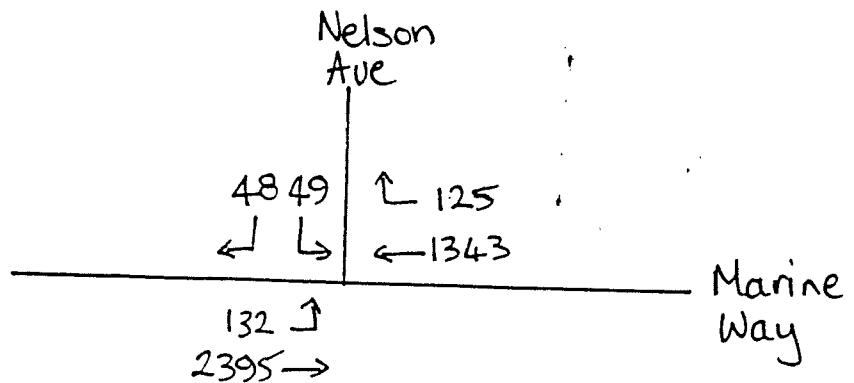 Nelson
Ave
48 49
125
1343
Marine
Way
132
2395